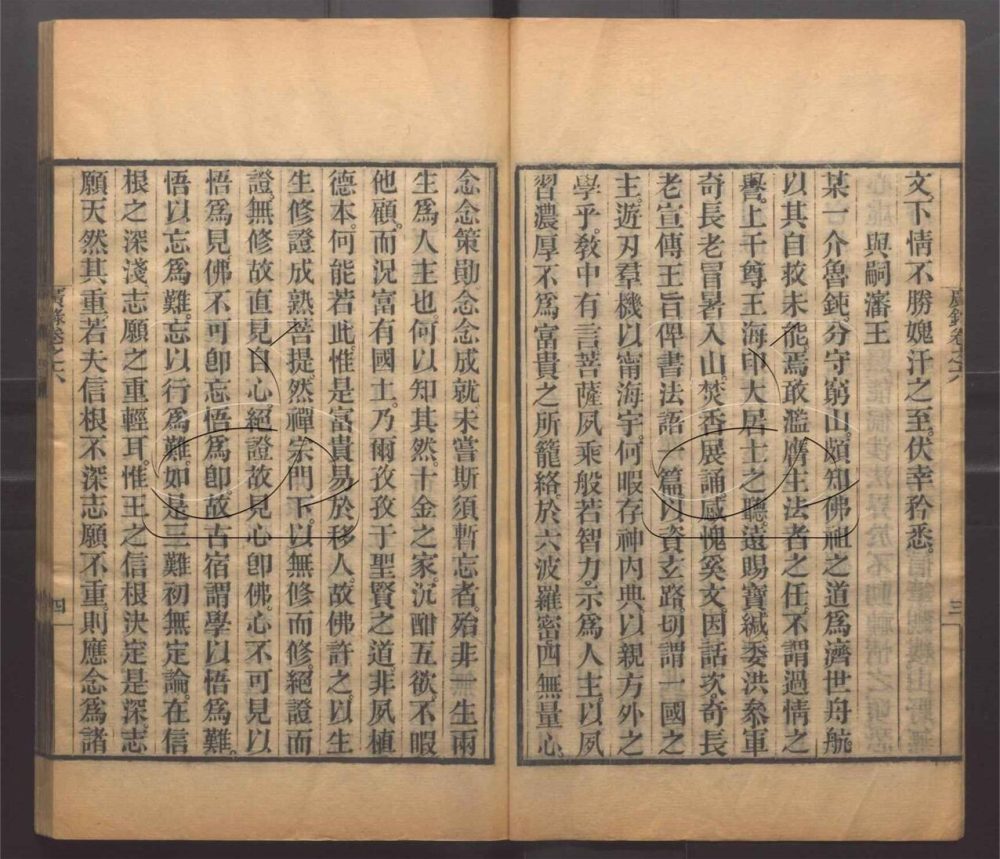 文下情不勝媿汗之至。伏幸矜悉。
與嗣瀋王
某一介魯鈍。分守窮山。頗知佛祖之道爲濟世舟航
以其自救未能焉敢濫膺主法者之任。不謂過情之
譽。上干尊王海印大居士之聽。遠賜寶緘委洪叅軍
奇長老冒暑入山焚香展誦感愧奚文。因話次。奇長
老宣傳王旨俾書法語一篇以資玄路切謂一國之
主。遊刃羣機以甯海宇。何暇存神內典以親方外之
學乎。敎中有言菩薩夙乘般若智力。示爲人主。以夙
習濃厚不爲富貴之所籠絡。於六波羅密四無量心。
廣錄卷之六
三
念念策勛念念成就未嘗斯須暫忘者。殆非一生兩
生爲人主也。何以知其然。十金之家。沉酣五欲。不暇
他顧。而況富有國土。乃爾孜孜于聖賢之道。非夙植
德本。何能若此。惟是富貴易於移人。故佛許之。以生
生修證成熟菩提。然禪宗門下。以無修而修。絕證而
證無修故直見自心絕證故見心卽佛。心不可見以
悟爲見佛不可卽忘悟爲卽。故古宿謂學以悟爲難。
悟以忘爲難。忘以行爲難。如是三難初無定論。在信
根之深淺志願之重輕耳。惟王之信根決定是深志
願天然其重。若夫信根不深志願不重。則應念爲諸
廣錄卷之六
四